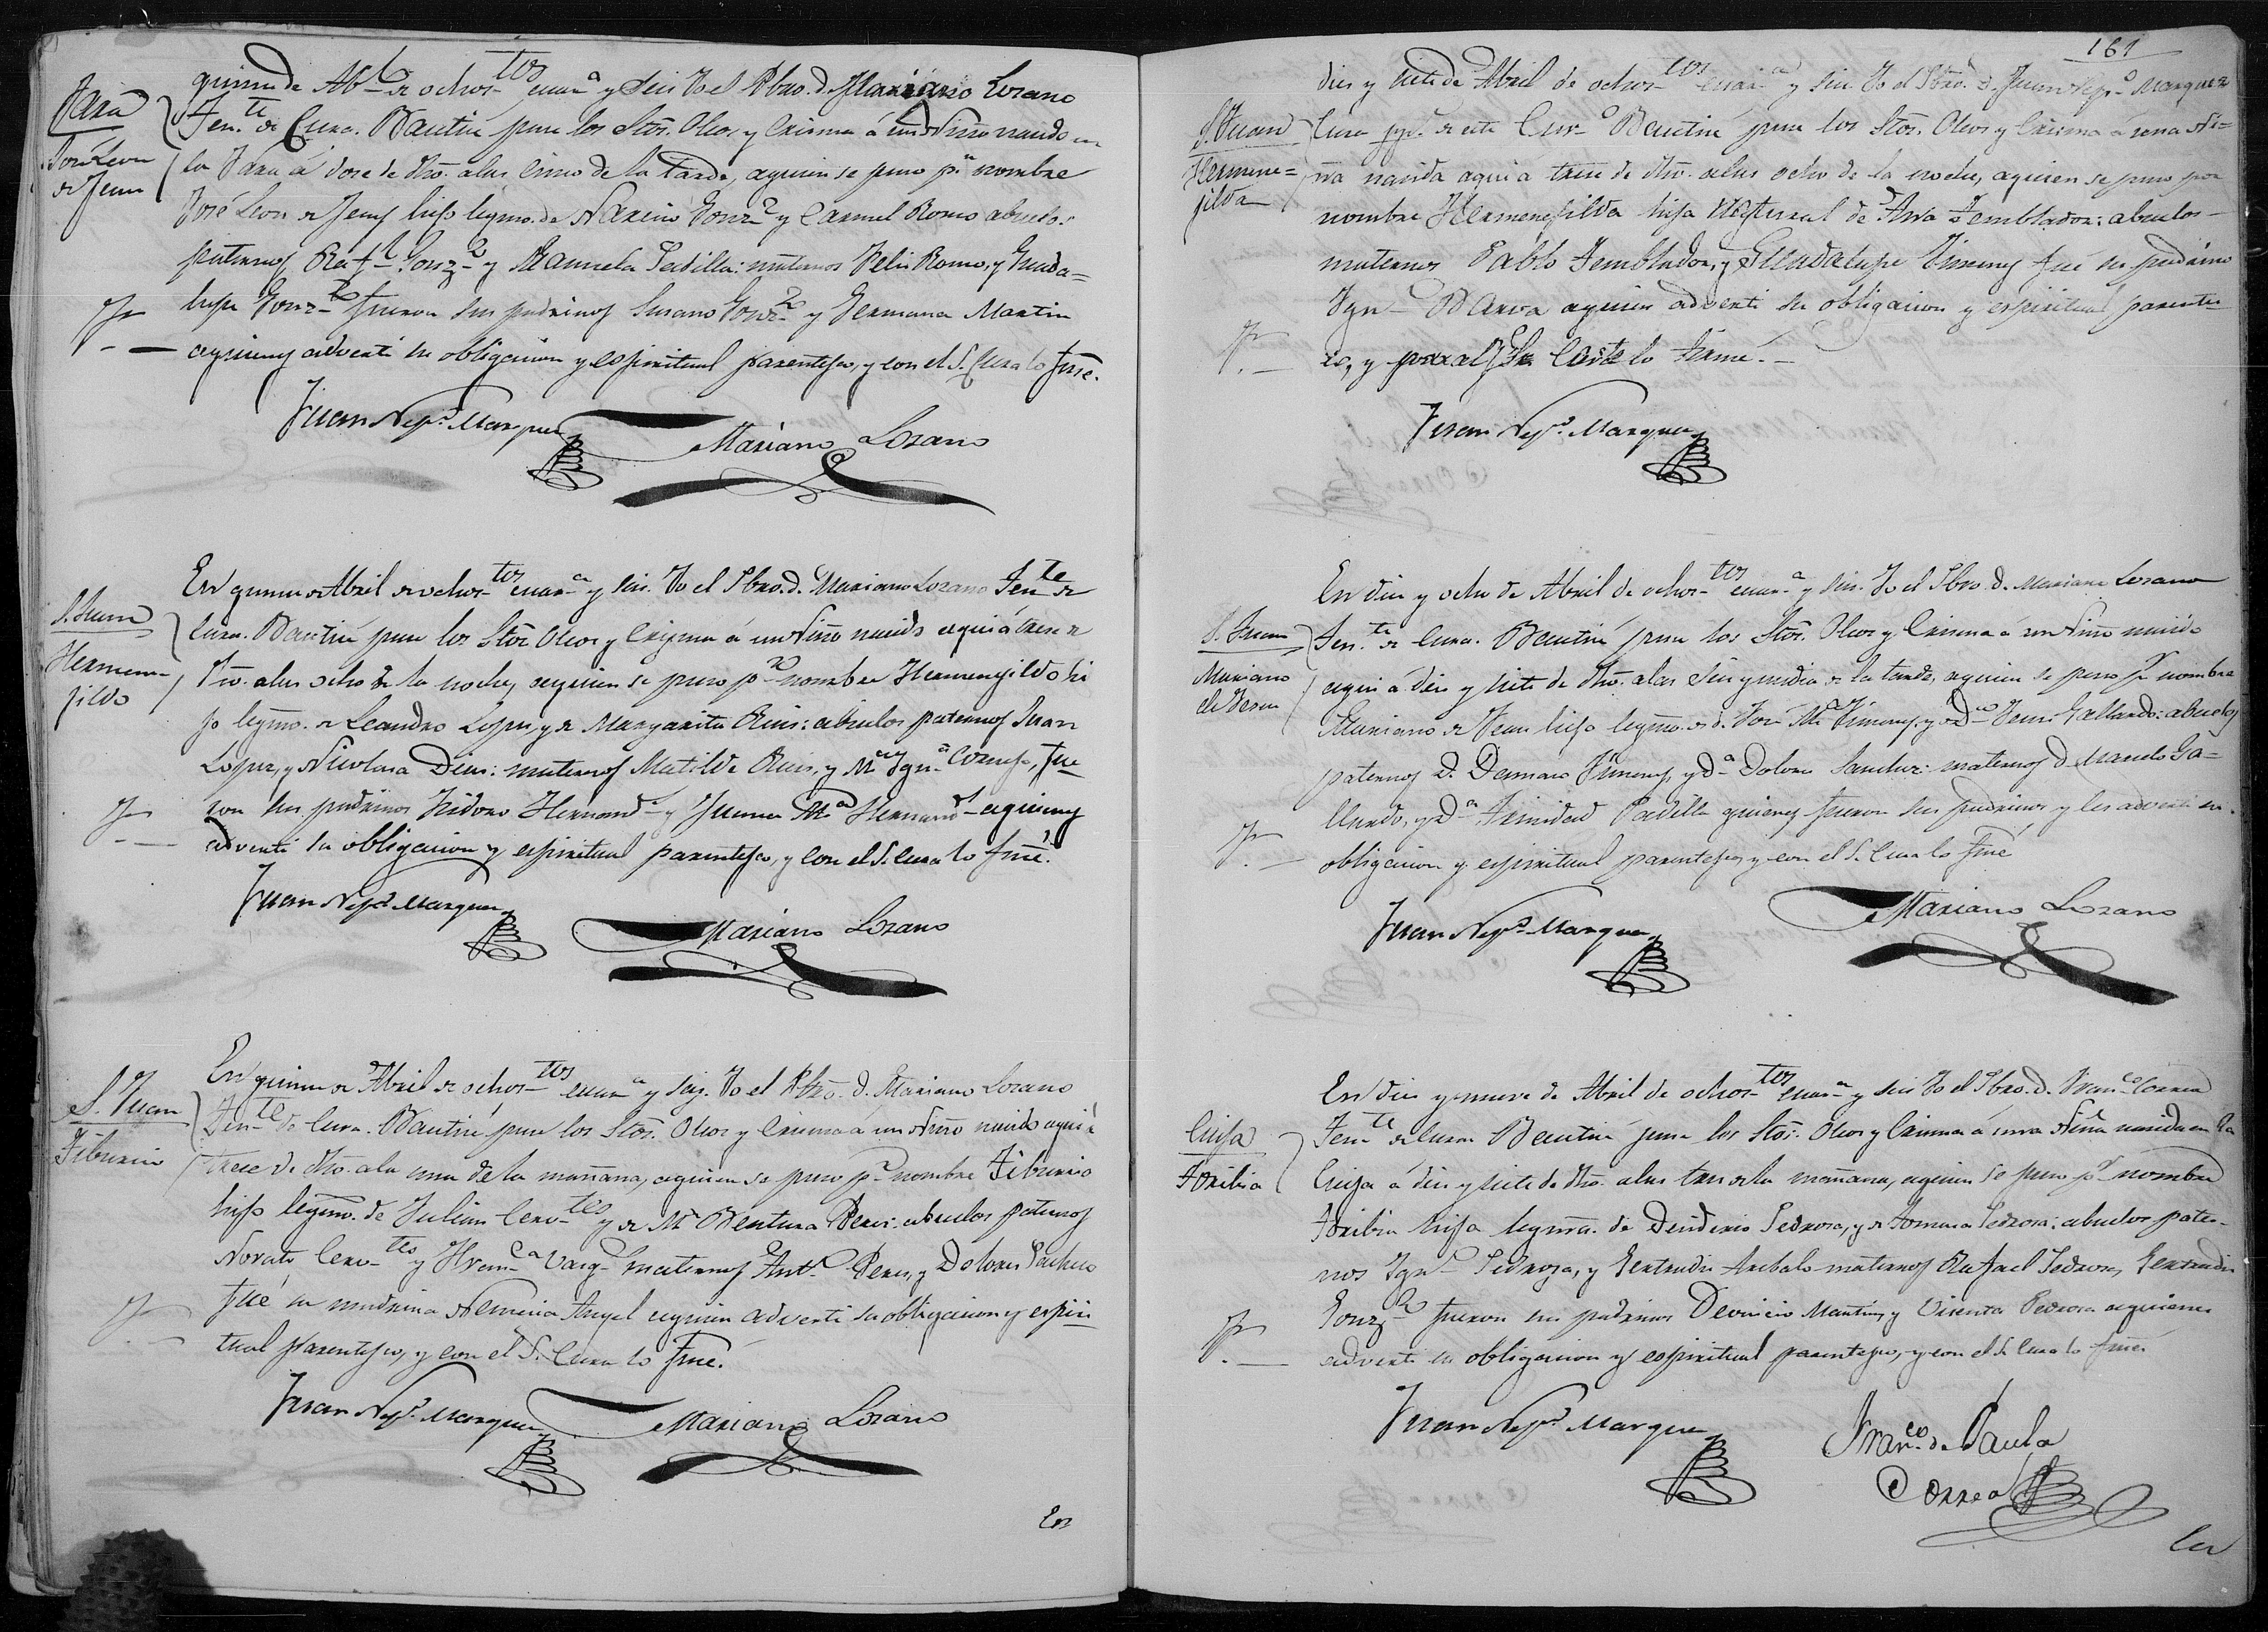 Jara
José Leon
de Jesus
quince de Ab.l de ochos.tos cuar.a y seis Yo el Pbro. d. Mariano Lozano
Ten.te de Cura. Bautisé puse los Stos. Oleos y Crisma á un Niño nacido en
la Jara á doce de dho. alas cinco de la tarde, aquien se puso p.r nombre
José Leon de Jesus hijo legmo. de Narciso Gonz.z y Carmel Romo abuelos
paternos Raf.l Gonz.z y Manuela Padilla: maternos Felis Romo, y Guada-
lupe Gonz.z fueron sus padrinos Susano Gonz.z y Germana Martin
aquienes adverti su obligacion y espiritual parentesco, y con el S. Cura lo firmé.
Juan Nep.o Marquez
Mariano Lozano
S. Juan
Hermene-
jildo
En quince de Abril de ochos.tos cuar.a y seis. Yo el Pbro. d. Mariano Lozano Ten.te de
Cura. Bautisé puse los Stos. Oleos y Crisma á un Niño nacido aqui á trese de
dho. alas ocho de la noche, aquien se puso p.r nombre Hermenejildo hi
jo legmo. de Leandro Lopes, y de Margarita Ruis: abuelos paternos Juan
Lopez, y Nicolasa Dias: maternos Matilde Ruis, y M.a Ygn.a Cornejo, fue
ron sus padrinos Ysidoro Hernand.z y Juana M.a Hernand.z aquienes
adverti su obligacion y espiritual parentesco, y con el S. Cura lo firmé.
Juan Nep.o Marquez
Mariano Lozano
S. Juan
Tiburcio
En quince de Abril de ochos.tos cuar.a y seis. Yo el Pbro. D. Mariano Lozano
Ten.te de Cura. Bautisé puse los Stos. Oleos y Crisma á un Niño nacido aqui á
trese de dho. ala una de la mañana, aquien se puso p.r nombre Tiburcio
hijo legmo. de Julian Cerv.tes y de M.a Ventura Peres: abuelos paternos
Novato Cerv.tes y Fran.ca Varg.s maternos Ant.o Peres, y Dolores Pacheco
fué su madrina Nemecia Angel aquien adverti su obligacion y espiri
tual parentesco, y con el S. Cura lo firmé.
Juan Nep.o Marquez
Mariano Lozano
En
161
S. Juan
Hermene=
jilda
dies y siete de Abril de ochos.tos cuar.a y seis Yo el Pbro. D. Juan Nep.o Marquez
Cura de este Cur.o Bautisé puse los Stos. Oleos y Crisma á una Ni=
ña nacida aqui á trese de dho. alas ocho de la noche, aquien se puso por
nombre Hermenejilda hija Natural de Ana Temblador: abuelos
maternos Pablo Temblador, y Guadalupe Ximenes fué su padrino
Ygn.o aquien adverti su obligacion y espiritual parentes
co, y lo firmé.
Juan Nep.o Marquez
S. Juan
Mariano
de Jesus
En dies y ocho de Abril de ochos.tos cuar.a y seis. Yo el Pbro. D. Mariano Lozano
Ten.te de Cura. Bautisé puse los Stos. Oleos y Crisma á un Niño nacido
aqui á dies y siete de dho. alas seis y media de la tarde, aquien se puso p.r nombre
Mariano de Jesus hijo legmo. de d. José M.a Ximenes, y d.a Jesus Gallardo: abuelos
paternos D. Damaso Ximenes, y d.a Dolores Sanchez: maternos d. Marcelo Ga=
llardo, y d.a Trinidad Padilla quienes fueron sus padrinos y les adverti su
obligacion y espiritual parentesco, y con el S. Cura lo firmé
Juan Nep.o Marquez
Mariano Lozano
Cieja
Toribia
En dies y nueve de Abril de ochos.tos cuar.a y seis Yo el Pbro. D. Fran.co Correa
Ten.te de Cura Bautisé puse los Stos. Oleos y Crisma á una Niña nacida en la
Cieja á dies y siete de dho. alas tres de la mañana, aquien se puso p.r nombre
Toribia hija legma. de Desiderio Pedrosa, y de Tomasa Pedrosa: abuelos pater-
nos Ygn.o Pedroza, y Gertrudis Arebalo maternos Rafael Pedrosa, Gertrudis
Gonz.z fueron sus padrinos Devicio Martines y Vicenta Pedrosa aquienes
adverti su obligacion y espiritual parentesco, y con el S. Cura lo firmé
Juan Nep.o Marquez
Fran.co de Paula
Correa
En